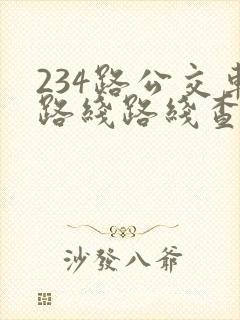 234路公交車
路綫路綫查
沙發八爺